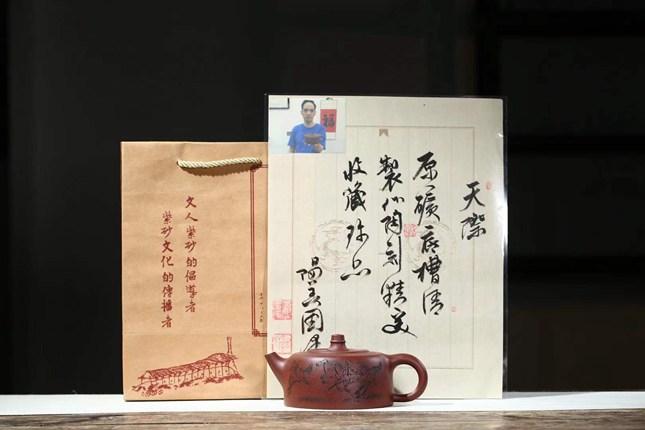 天際
原礦底槽清
製作陶刻精美
收藏珍品
陽羡國
福
文人紫砂的倡導者
紫砂文化的傳播者